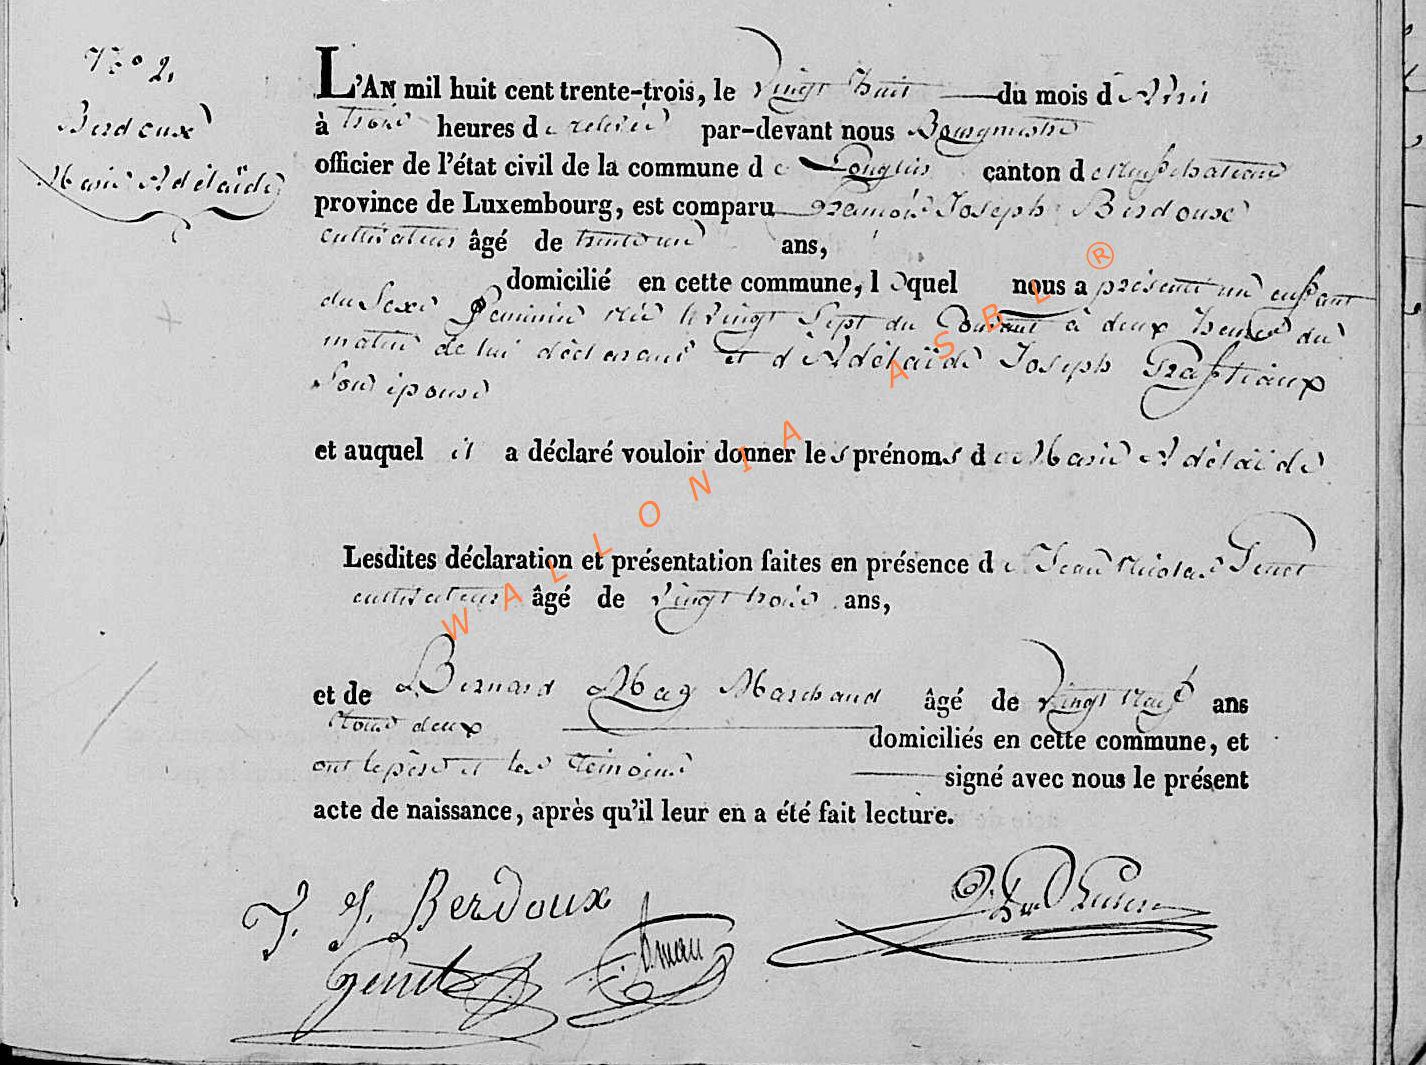 N° 2.
Berdoux
Marie Adélaïde
L'AN mil huit cent trente-trois, le vingt huit du mois d'Avril
à trois heures de relevée par-devant nous Bourgmestre
officier de l'état civil de la commune de Longlier canton de Neufchateau
province de Luxembourg, est comparu Joseph Berdoux
cultivateur âgé de trente un ans,
domicilié en cette commune, lequel nous a présenté un enfant
du Sexe feminin née le vingt Sept du Courant à deux heures du
matin de lui déclarant et d'Adélaïde Joseph
Son épouse
et auquel il a déclaré vouloir donner les prénoms de Marie Adélaïde
Lesdites déclaration et présentation faites en présence de Jean Nicolas Genet
cultivateur âgé de vingt trois ans,
et de Bernard May Marchand âgé de vingt neuf ans
tous deux domiciliés en cette commune, et
ont le père et les témoins signé avec nous le présent
acte de naissance, après qu'il leur en a été fait lecture.
J. Berdoux
Genet
WALLONIA ASBL ®